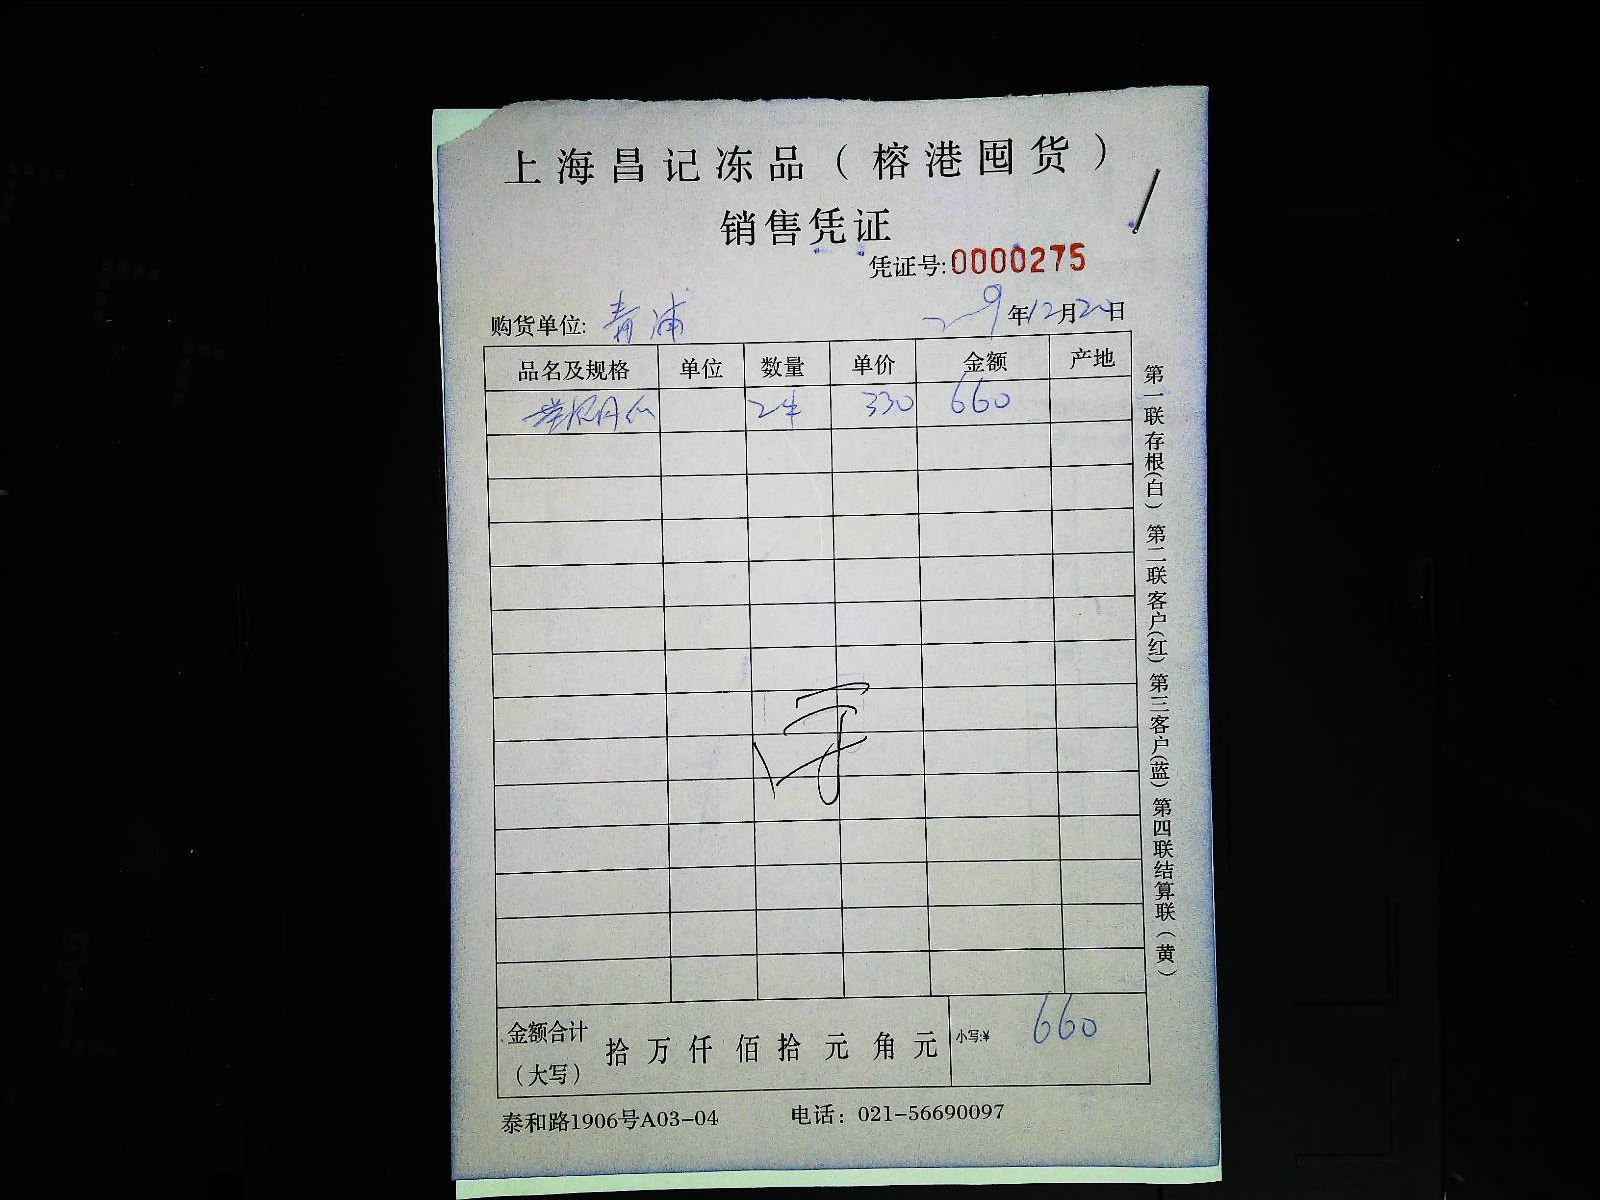 上海昌记冻品（榕港囤货）
销售凭证
凭证号:0000275
购货单位: 青浦 年12月 日
品名及规格 单位 数量 单价 金额 产地
2件 330 660
金额合计（大写） 拾 万 仟 佰 拾 元 角 元 小写:¥ 660
泰和路1906号A03-04 电话：021-56690097
第一联存根(白) 第二联客户(红) 第三客户(蓝) 第四联结算联（黄）